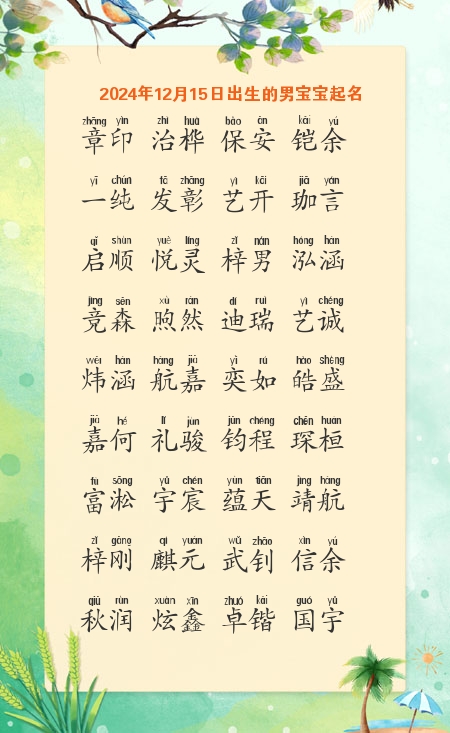 2024年12月15日出生的男宝宝起名
zhāng yìn zhì huà bǎo ān kǎi yú
章印 治桦 保安 铠余
yī chún fā zhāng yì kāi jiā yán
一纯 发彰 艺开 珈言
qǐ shùn yuè líng zǐ nán hóng hán
启顺 悦灵 梓男 泓涵
jìng sēn xù rán dí ruì yì chéng
竞森 煦然 迪瑞 艺诚
wěi hán háng jiā yì rú hào shèng
炜涵 航嘉 奕如 皓盛
jiā hé lǐ jùn jūn chéng chēn huán
嘉何 礼骏 钧程 琛桓
fù sōng yǔ chén yùn tiān jìng háng
富淞 宇宸 蕴天 靖航
zǐ gāng qí yuán wǔ zhāo xìn yú
梓刚 麒元 武钊 信余
qiū rùn xuàn xīn zhuó kǎi guó yǔ
秋润 炫鑫 卓锴 国宇